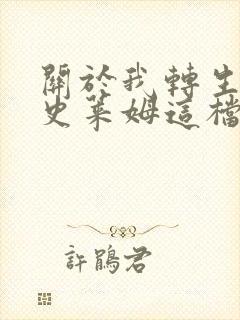 關於我轉生
史萊姆這檔
許鵑君